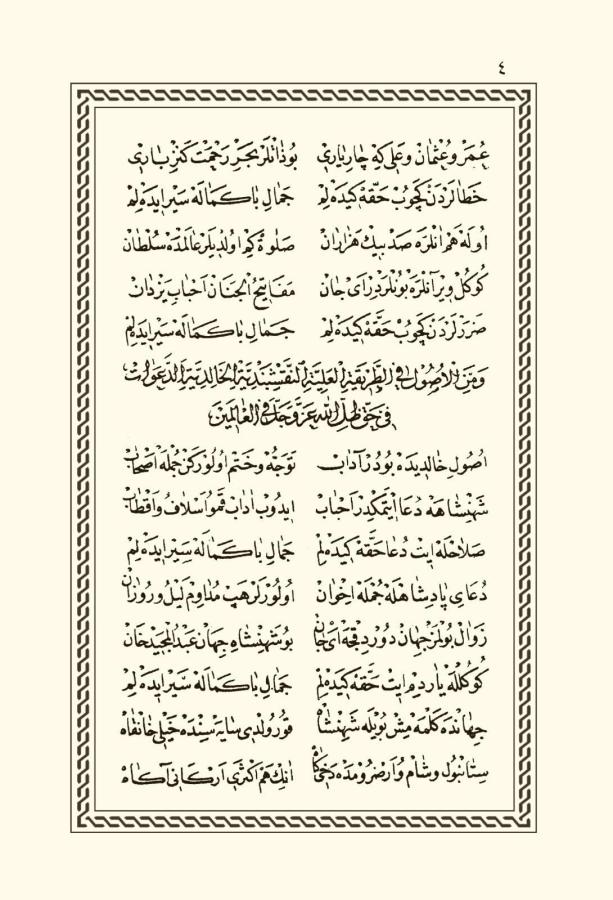 ٤
عمر و عثمان و على كه چار يارى بو ذاتلر بحر رحمت كنز بارى
خطالردن كچوب حقه كيده لم جمال با كماله سير ايده لم
اوله هم انلره صد بيك هزاران صلوة كم اولديلر عالمده سلطان
كوكل وير آنلره بونلردر اى جان مفاتيح الجنان احباب يزدان
ضررلردن كچوب حقه كيده لم جمال با كماله سير ايده لم
ومن الاصول فى الطريقة العلية النقشبندية الخالدية الدعوات
فى حق ظل الله عز وجل فى العالمين
اصول خالديده بودر آداب توجه و ختم اولور كن جمله اصحاب
شهنشاهه دعا ايتمكدر احباب ايدوب اداب قمو اسلاف و اقطاب
صلاحله ايت دعا حقه كيده لم جمال با كماله سير ايده لم
دعاى پادشاهله جمله اخوان اولورلر هپ مداوم ليل و روزان
زوال بولمز جهان دوردقجه اى جان بو شهنشاه جهان عبد المجيد خان
كوكلله ياردم ايت حقه كيده لم جمال با كماله سير ايده لم
جهانده كلمه مش بويله شهنشاه قورولدى سايه سنده خيلى خانقاه
ستانبول و شام و ارضرومده انك هم اكثرى اركانى آكاه